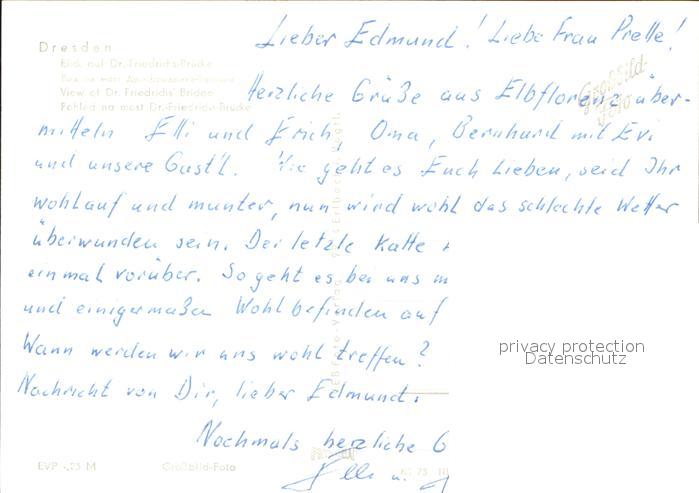 Lieber Edmund! Liebe Frau Prelle!
Dresden
Blick auf Dr.-Friedrichs-Brücke
View of Dr. Friedrichs' Bridge
Pohled na most Dr.-Friedrich-Brücke
Großbild-
Foto
Herzliche Grüße aus Elbflorenz über-
mitteln Elli und Erich, Oma, Bernhard mit Evi
und unsere Gast'l. Wie geht es Euch Lieben, seid Ihr
wohlauf und munter, nun wird wohl das schlechte Wetter
überwunden sein. Der letzte
einmal vorüber. So geht es bei uns m
und einigermaßen Wohlbefinden auf
Wann werden wir uns wohl treffen?
Nachricht von Dir, lieber Edmund.
Nochmals herzliche G
Elli u.
EVP -,25 M
Großbild-Foto
privacy protection
Datenschutz